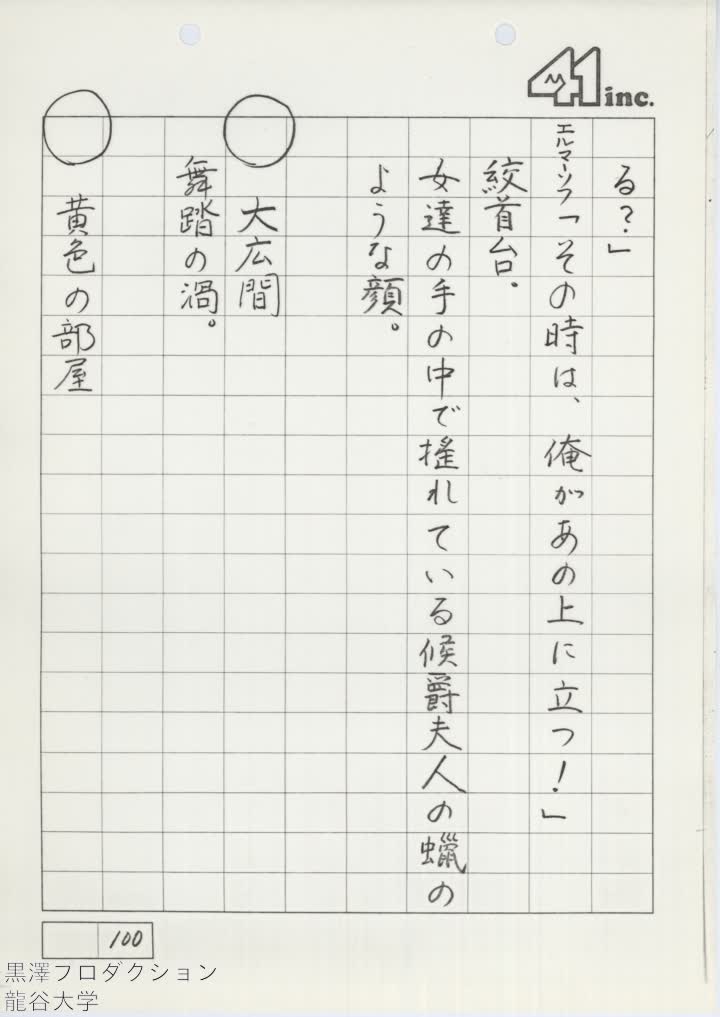 41 inc.
る?」
エルマーソフ「その時は、俺があの上に立つ!」
絞首台.
女達の手の中で揺れている候爵夫人の蠟の
ような顔。
○ 大広間
舞踏の渦。
○ 黄色の部屋
100
黒澤プロダクション
龍谷大学